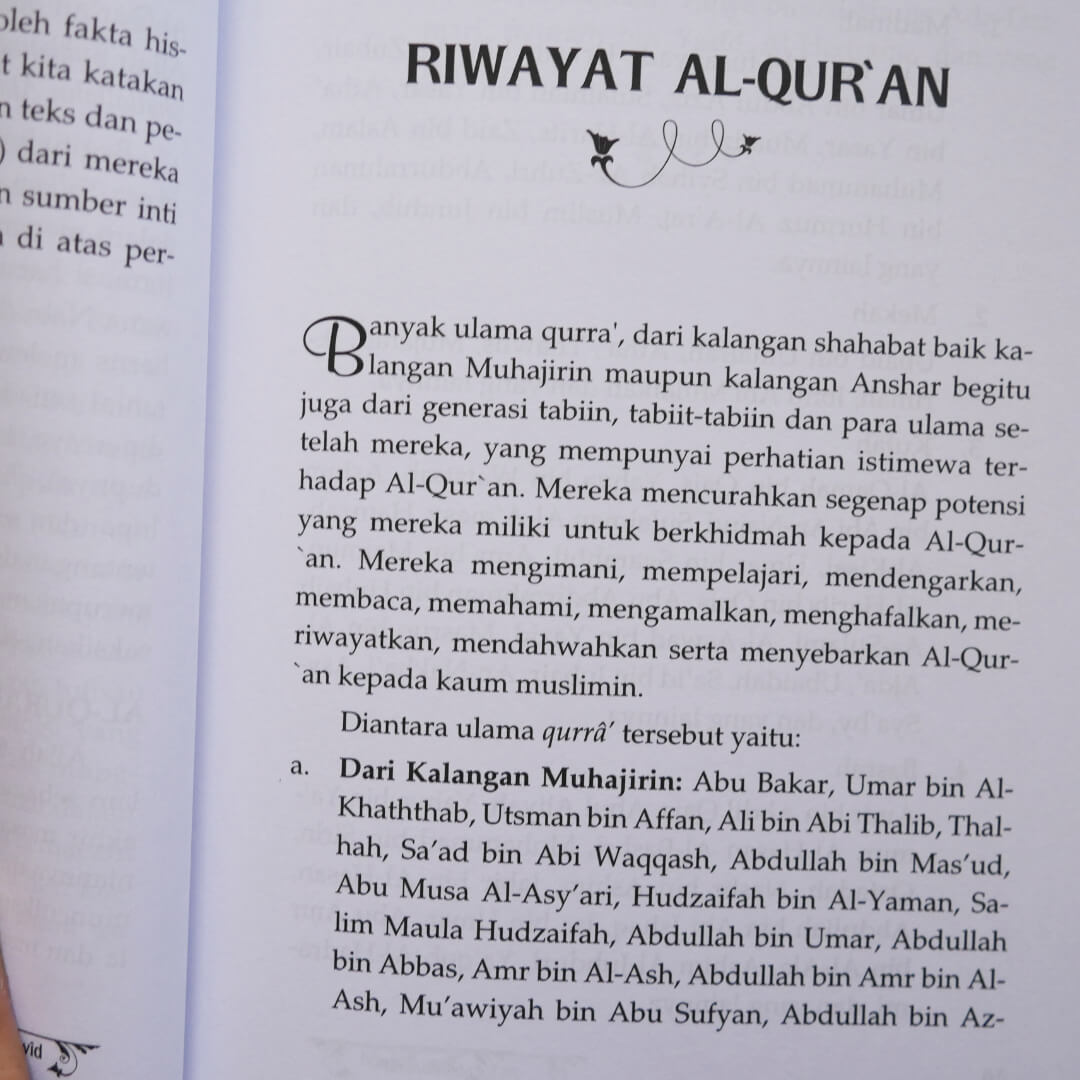 oleh fakta his-
t kita katakan
n teks dan pe-
) dari mereka
n sumber inti
di atas per-
RIWAYAT AL-QUR`AN
Banyak ulama qurra', dari kalangan shahabat baik ka-
langan Muhajirin maupun kalangan Anshar begitu
juga dari generasi tabiin, tabiit-tabiin dan para ulama se-
telah mereka, yang mempunyai perhatian istimewa ter-
hadap Al-Qur`an. Mereka mencurahkan segenap potensi
yang mereka miliki untuk berkhidmah kepada Al-Qur-
`an. Mereka mengimani, mempelajari, mendengarkan,
membaca, memahami, mengamalkan, menghafalkan, me-
riwayatkan, mendahwahkan serta menyebarkan Al-Qur-
`an kepada kaum muslimin.
Diantara ulama qurrâ' tersebut yaitu:
a. Dari Kalangan Muhajirin: Abu Bakar, Umar bin Al-
Khaththab, Utsman bin Affan, Ali bin Abi Thalib, Thal-
hah, Sa'ad bin Abi Waqqash, Abdullah bin Mas'ud,
Abu Musa Al-Asy'ari, Hudzaifah bin Al-Yaman, Sa-
lim Maula Hudzaifah, Abdullah bin Umar, Abdullah
bin Abbas, Amr bin Al-Ash, Abdullah bin Amr bin Al-
Ash, Mu'awiyah bin Abu Sufyan, Abdullah bin Az-